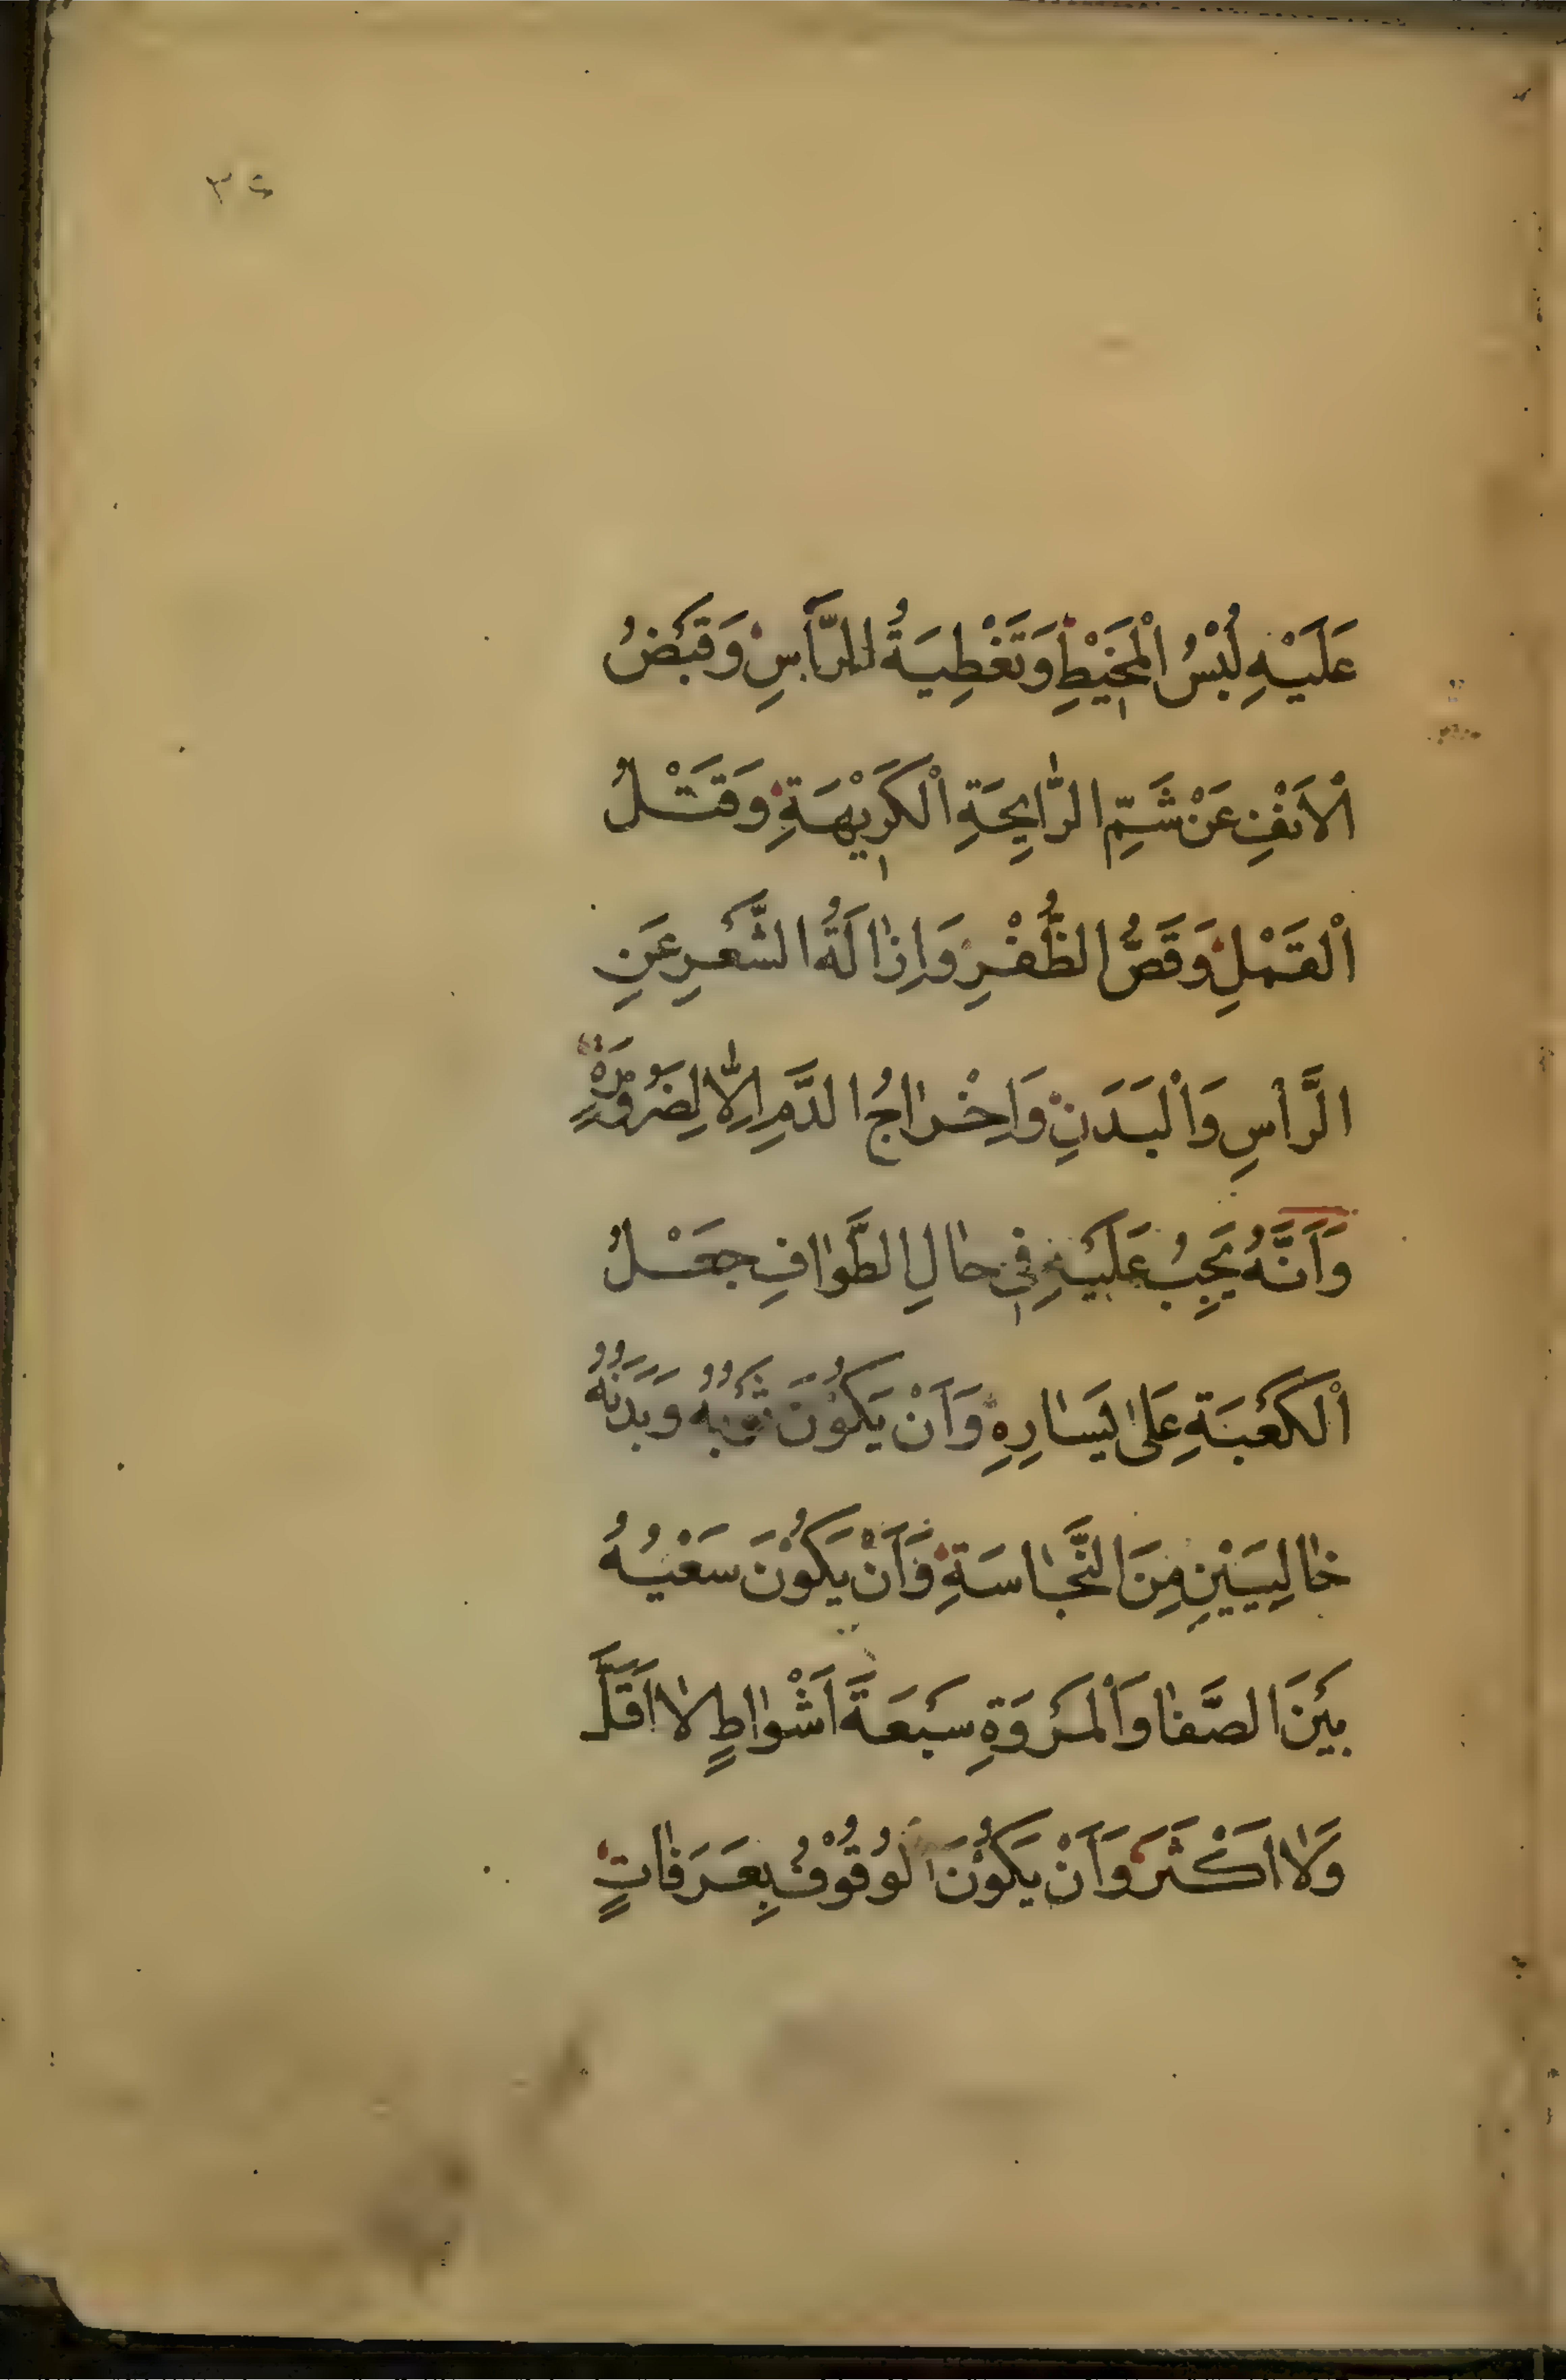 عَلَيْهِ لُبْسُ الْمَخِيْطِ وَتَغْطِيَةُ للرَّأسِ وَقَبْضُ
الْاَنْفِ عَنْ شَمِّ الرَّايِحَةِ الْكَرِيْهَةِ وَقَتْلُ
الْقَمْلِ وَقَصُّ الظُّفْرِ وَاِزَالَةُ الشَّعْرِ عَنِ
الرَّأْسِ وَالْبَدَنِ وَاِخْرَاجُ الدَّمِ اِلَّا لِضَرُوْرَةٍ
وَاَنَّهُ يَجِبُ عَلَيْهِ فِي حَالِ الطَّوَافِ جَعْلُ
الْكَعْبَةِ عَلَى يَسَارِهِ وَاَنْ يَكُوْنَ ثَوْبُهُ وَبَدَنُهُ
خَالِيَيْنِ مِنَ النَّجَاسَةِ وَاَنْ يَكُوْنَ سَعْيُهُ
بَيْنَ الصَّفَا وَالْمَرْوَةِ سَبْعَةَ اَشْوَاطٍ لَا اَقَلَّ
وَلَا اَكْثَرَ وَاَنْ يَكُوْنَ الْوُقُوْفُ بِعَرَفَاتٍ